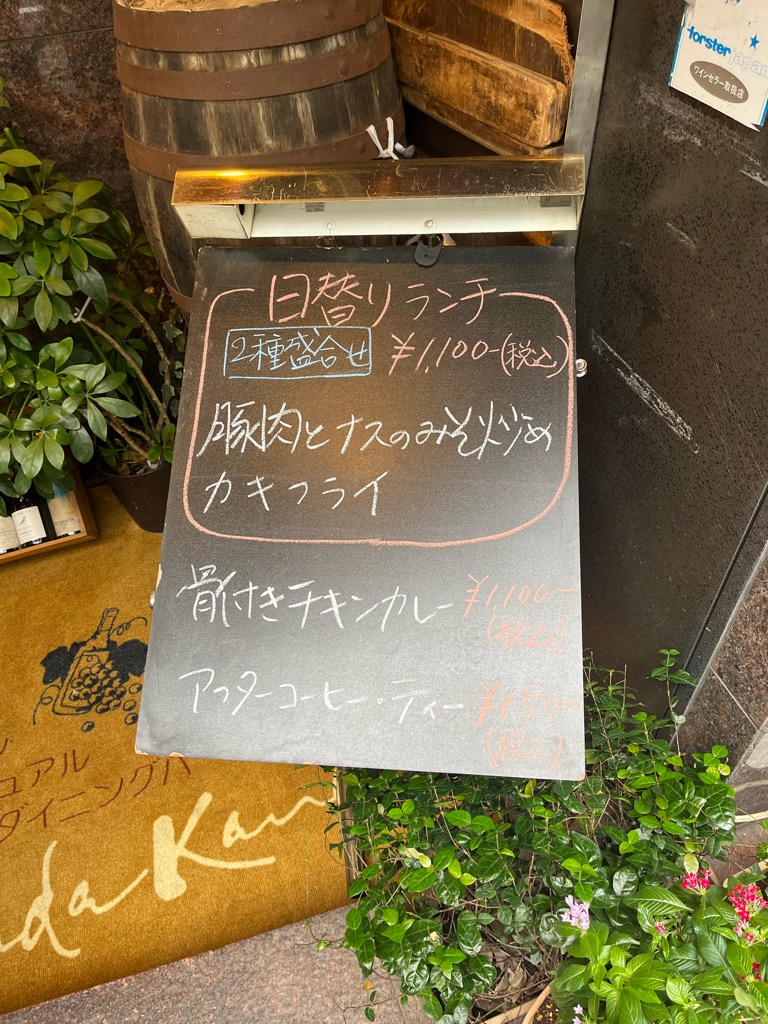 forster japan
ワインセラー取扱店
日替りランチ
2種盛合せ ¥1,100-(税込)
豚肉とナスのみそ炒め
カキフライ
骨付きチキンカレー ¥1,100-
(税込)
アフターコーヒー・ティー ¥150-
(税込)
ュアル
ダイニングバ
da Kan